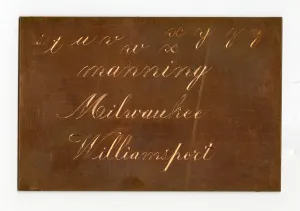 s t u v w x x y y z
manning
Milwaukee
Williamsport